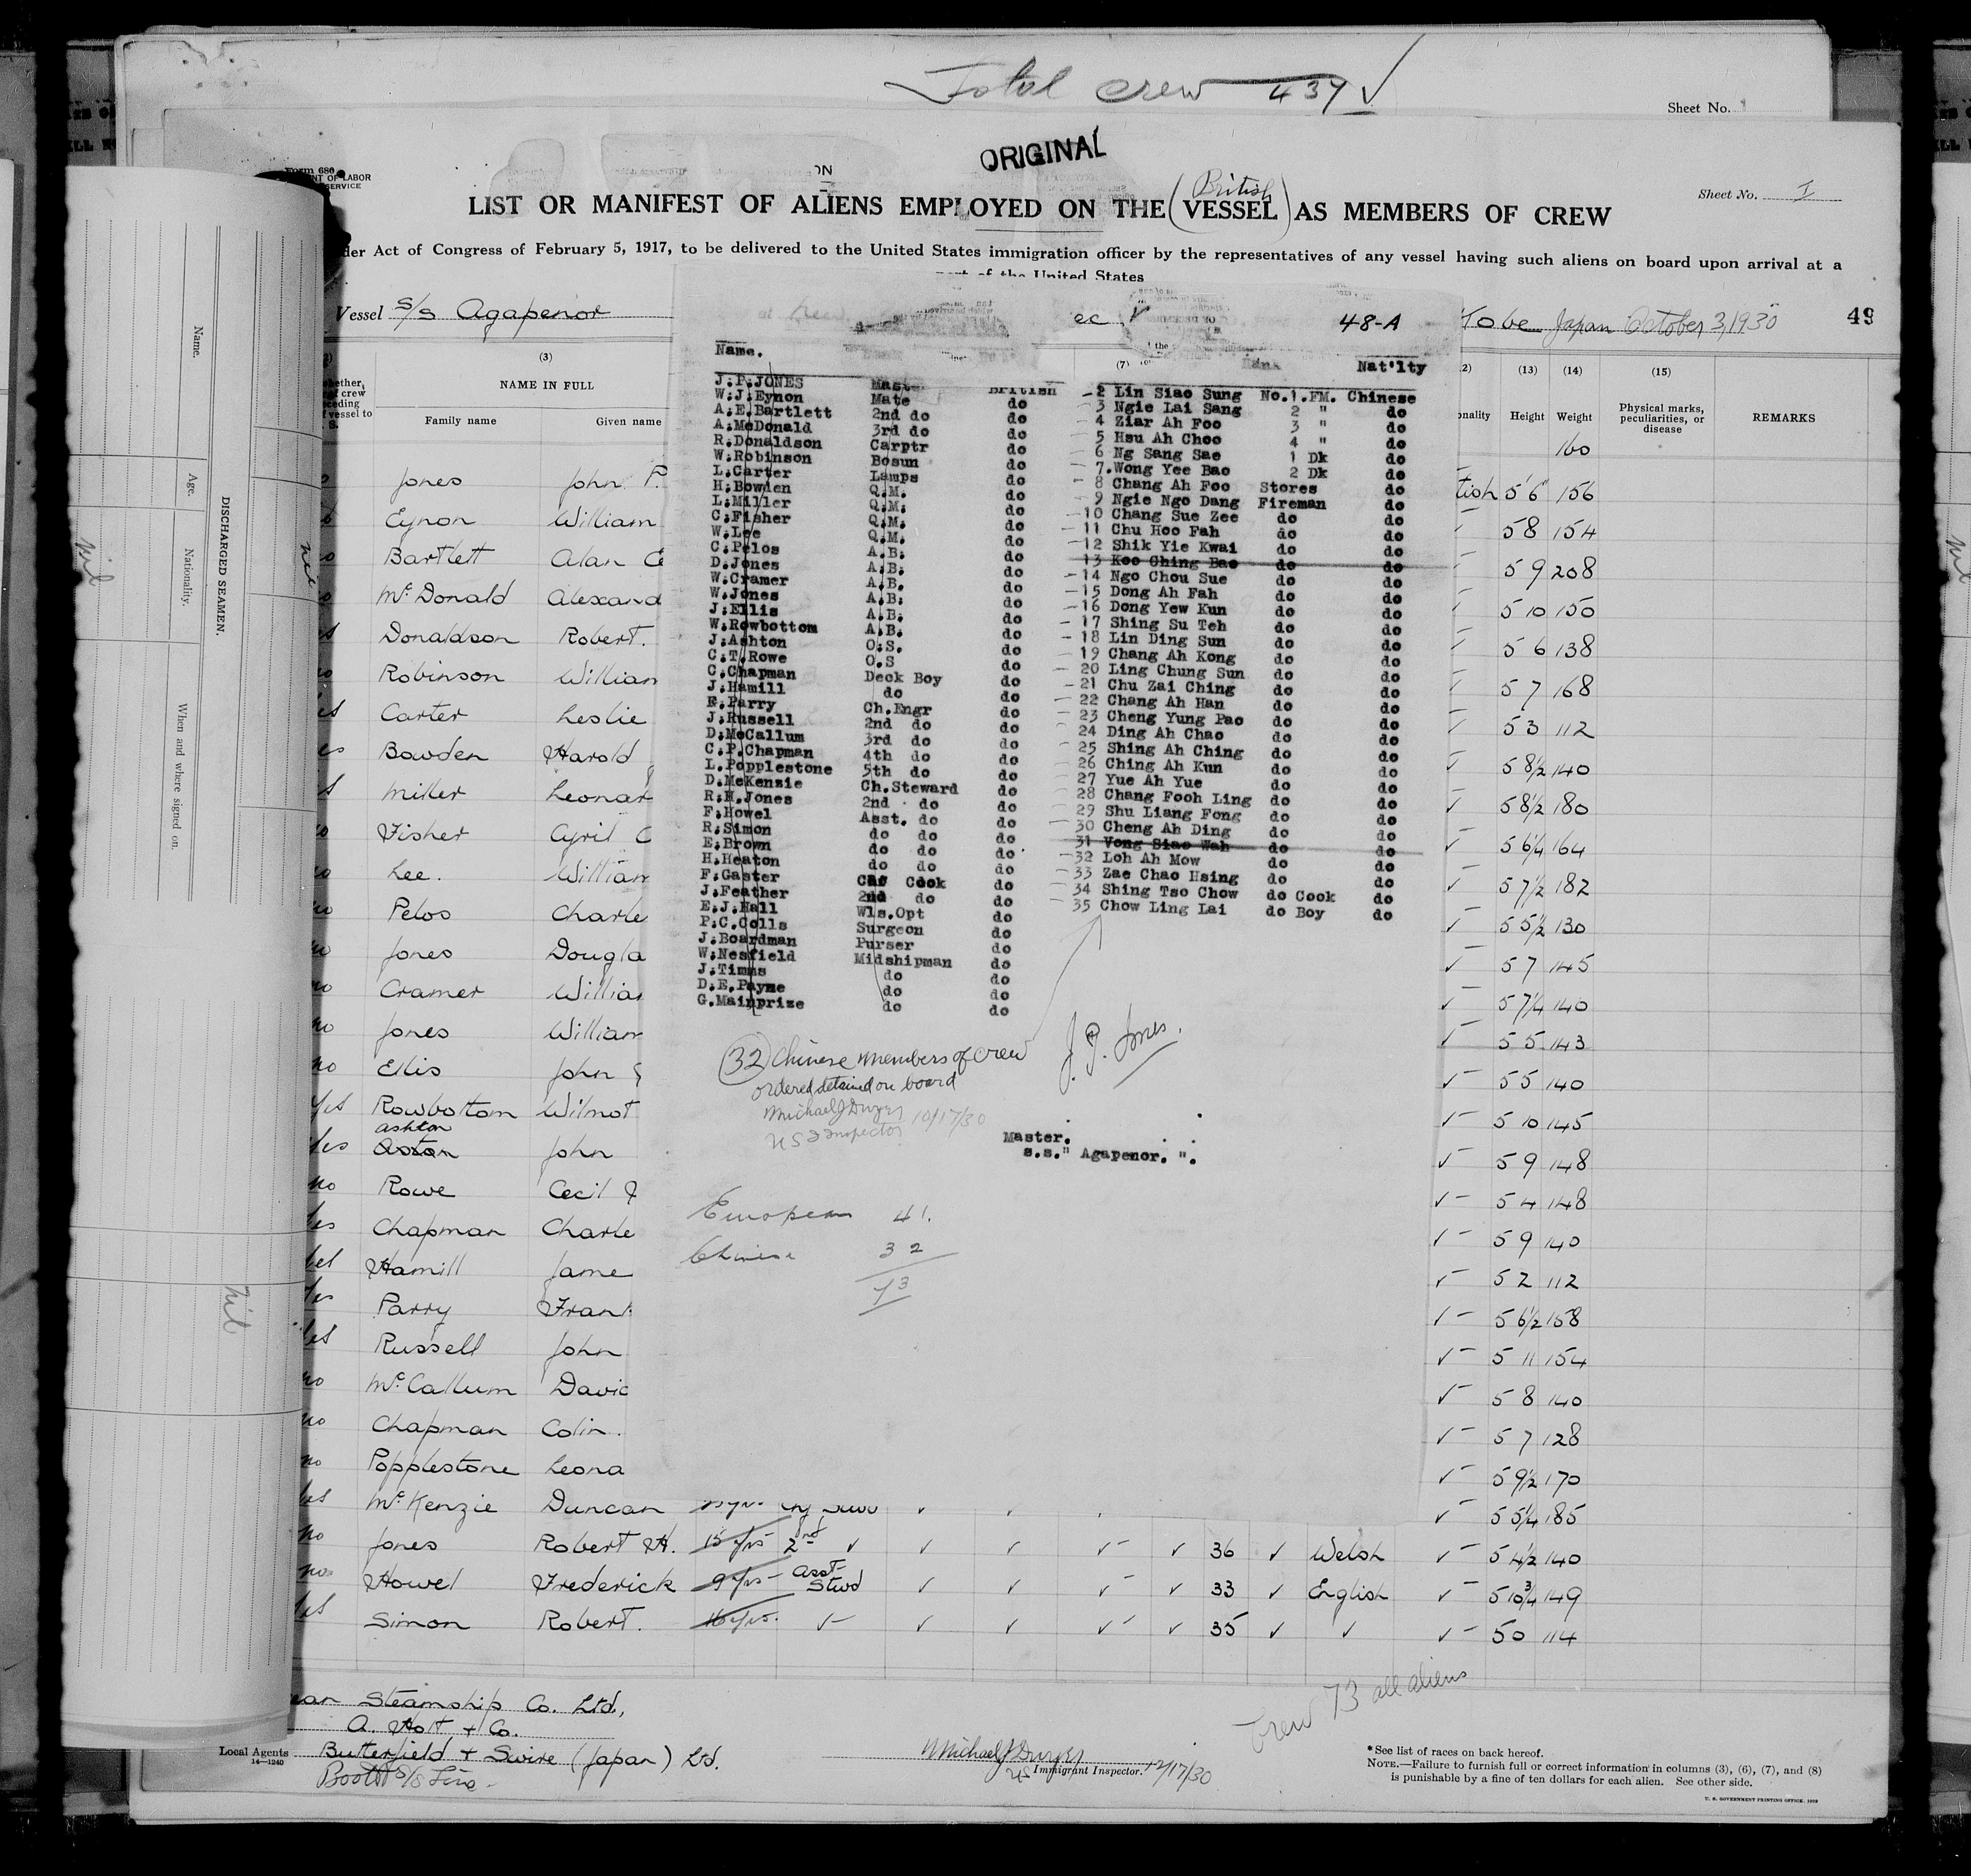 Total crew 437 ✓
Sheet No.
ORIGINAL
Form 680
LIST OR MANIFEST OF ALIENS EMPLOYED ON THE (British VESSEL) AS MEMBERS OF CREW
Sheet No. I
Act of Congress of February 5, 1917, to be delivered to the United States immigration officer by the representatives of any vessel having such aliens on board upon arrival at a
of the United States
Vessel S/S Agapenor
48-A
Kobe Japan October 3, 1930
49
(3) NAME IN FULL
Family name Given name
(13) Height
(14) Weight
(15) Physical marks, peculiarities, or disease
REMARKS
160
Jones John P.
Eynon William
Bartlett Alan
McDonald
Donaldson Robert.
Robinson
Carter Leslie
Bowden Harold
Miller
Fisher Cyril
Lee.
Pelos
Jones
Cramer
Jones William
Ellis John
Rowbottom Wilmot
Ashton
Aston John
Rowe Cecil
Chapman
Hamill
Parry
Russell John
McCallum
Chapman Colin
Popplestone
McKenzie Duncan
Jones Robert H. 15 yrs 2nd ✓ ✓ ✓ ✓ ✓ 36 ✓ Welsh ✓ 5 4½ 140
Howel Frederick 9 yrs Asst Stwd ✓ ✓ ✓ ✓ 33 ✓ English ✓ 5 10¾ 149
Simon Robert. 16 yrs. ✓ ✓ ✓ ✓ ✓ 35 ✓ ✓ ✓ 5 0 114
5 6 156
5 8 154
5 9 208
5 10 150
5 6 138
5 7 168
5 3 112
5 8½ 140
5 8½ 180
5 6¼ 164
5 7½ 182
5 5½ 130
5 7 145
5 7¼ 140
5 5 143
5 5 140
5 10 145
5 9 148
5 4 148
5 9 140
5 2 112
5 6½ 158
5 11 154
5 8 140
5 7 128
5 9½ 170
5 5¼ 185
Name.
J.P.JONES
W.J.Eynon Mate do
A.E.Bartlett 2nd do do
A.McDonald 3rd do do
R.Donaldson Carptr do
W.Robinson Bosun do
L.Carter Lamps do
H.Bowden Q.M. do
L.Miller Q.M. do
C.Fisher Q.M. do
W.Lee Q.M. do
C.Pelos A.B. do
D.Jones A.B. do
W.Cramer A.B. do
W.Jones A.B. do
J.Ellis A.B. do
W.Rowbottom A.B. do
J.Ashton O.S. do
C.T.Rowe O.S do
C.Chapman Deck Boy do
J.Hamill do do
F.Parry Ch.Engr do
J.Russell 2nd do do
D.McCallum 3rd do do
C.P.Chapman 4th do do
L.Popplestone 5th do do
D.McKenzie Ch.Steward do
R.H.Jones 2nd do do
F.Howel Asst. do do
R.Simon do do do
E.Brown do do do
H.Heaton do do do
F.Gaster Cook do
J.Feather 2nd do do
E.J.Hall Wls.Opt do
P.C.Colls Surgeon do
J.Boardman Purser do
W.Nesfield Midshipman do
J.Timms do do
D.E.Payne do do
G.Mainprize do do
Nat'lty
2 Lin Siao Sung No.1.FM. Chinese
3 Ngie Lai Sang 2 " do
4 Ziar Ah Foo 3 " do
5 Hsu Ah Choo 4 " do
6 Ng Sang Sae 1 Dk do
7.Wong Yee Bao 2 Dk do
8 Chang Ah Foo Stores do
9 Ngie Ngo Dang Fireman do
10 Chang Sue Zee do do
11 Chu Hoo Fah do do
12 Shik Yie Kwai do do
13 Koo Ching Bao do do
14 Ngo Chou Sue do do
15 Dong Ah Fah do do
16 Dong Yew Kun do do
17 Shing Su Teh do do
18 Lin Ding Sun do do
19 Chang Ah Kong do do
20 Ling Chung Sun do do
21 Chu Zai Ching do do
22 Chang Ah Han do do
23 Cheng Yung Pao do do
24 Ding Ah Chao do do
25 Shing Ah Ching do do
26 Ching Ah Kun do do
27 Yue Ah Yue do do
28 Chang Fooh Ling do do
29 Shu Liang Fong do do
30 Cheng Ah Ding do do
31 Vong Siao Wah do do
32 Loh Ah Mow do do
33 Zae Chao Hsing do do
34 Shing Tso Chow do Cook do
35 Chow Ling Lai do Boy do
32 Chinese members of crew
ordered detained on board
Michael J Dwyer 10/17/30
US Inspector
J. P. Jones.
Master.
s.s." Agapenor. ".
European 41.
Chinese 32
73
Crew 73 all aliens
Steamship Co. Ltd.,
A. Holt & Co.
Local Agents Butterfield & Swire (Japan) Ltd.
14-1240
Booth S/S Line
Michael J Dwyer
US Immigrant Inspector. 12/17/30
* See list of races on back hereof.
NOTE.—Failure to furnish full or correct information in columns (3), (6), (7), and (8)
is punishable by a fine of ten dollars for each alien. See other side.
U. S. GOVERNMENT PRINTING OFFICE
DISCHARGED SEAMEN.
Name.
Age.
Nationality.
When and where signed on.
nil
nil